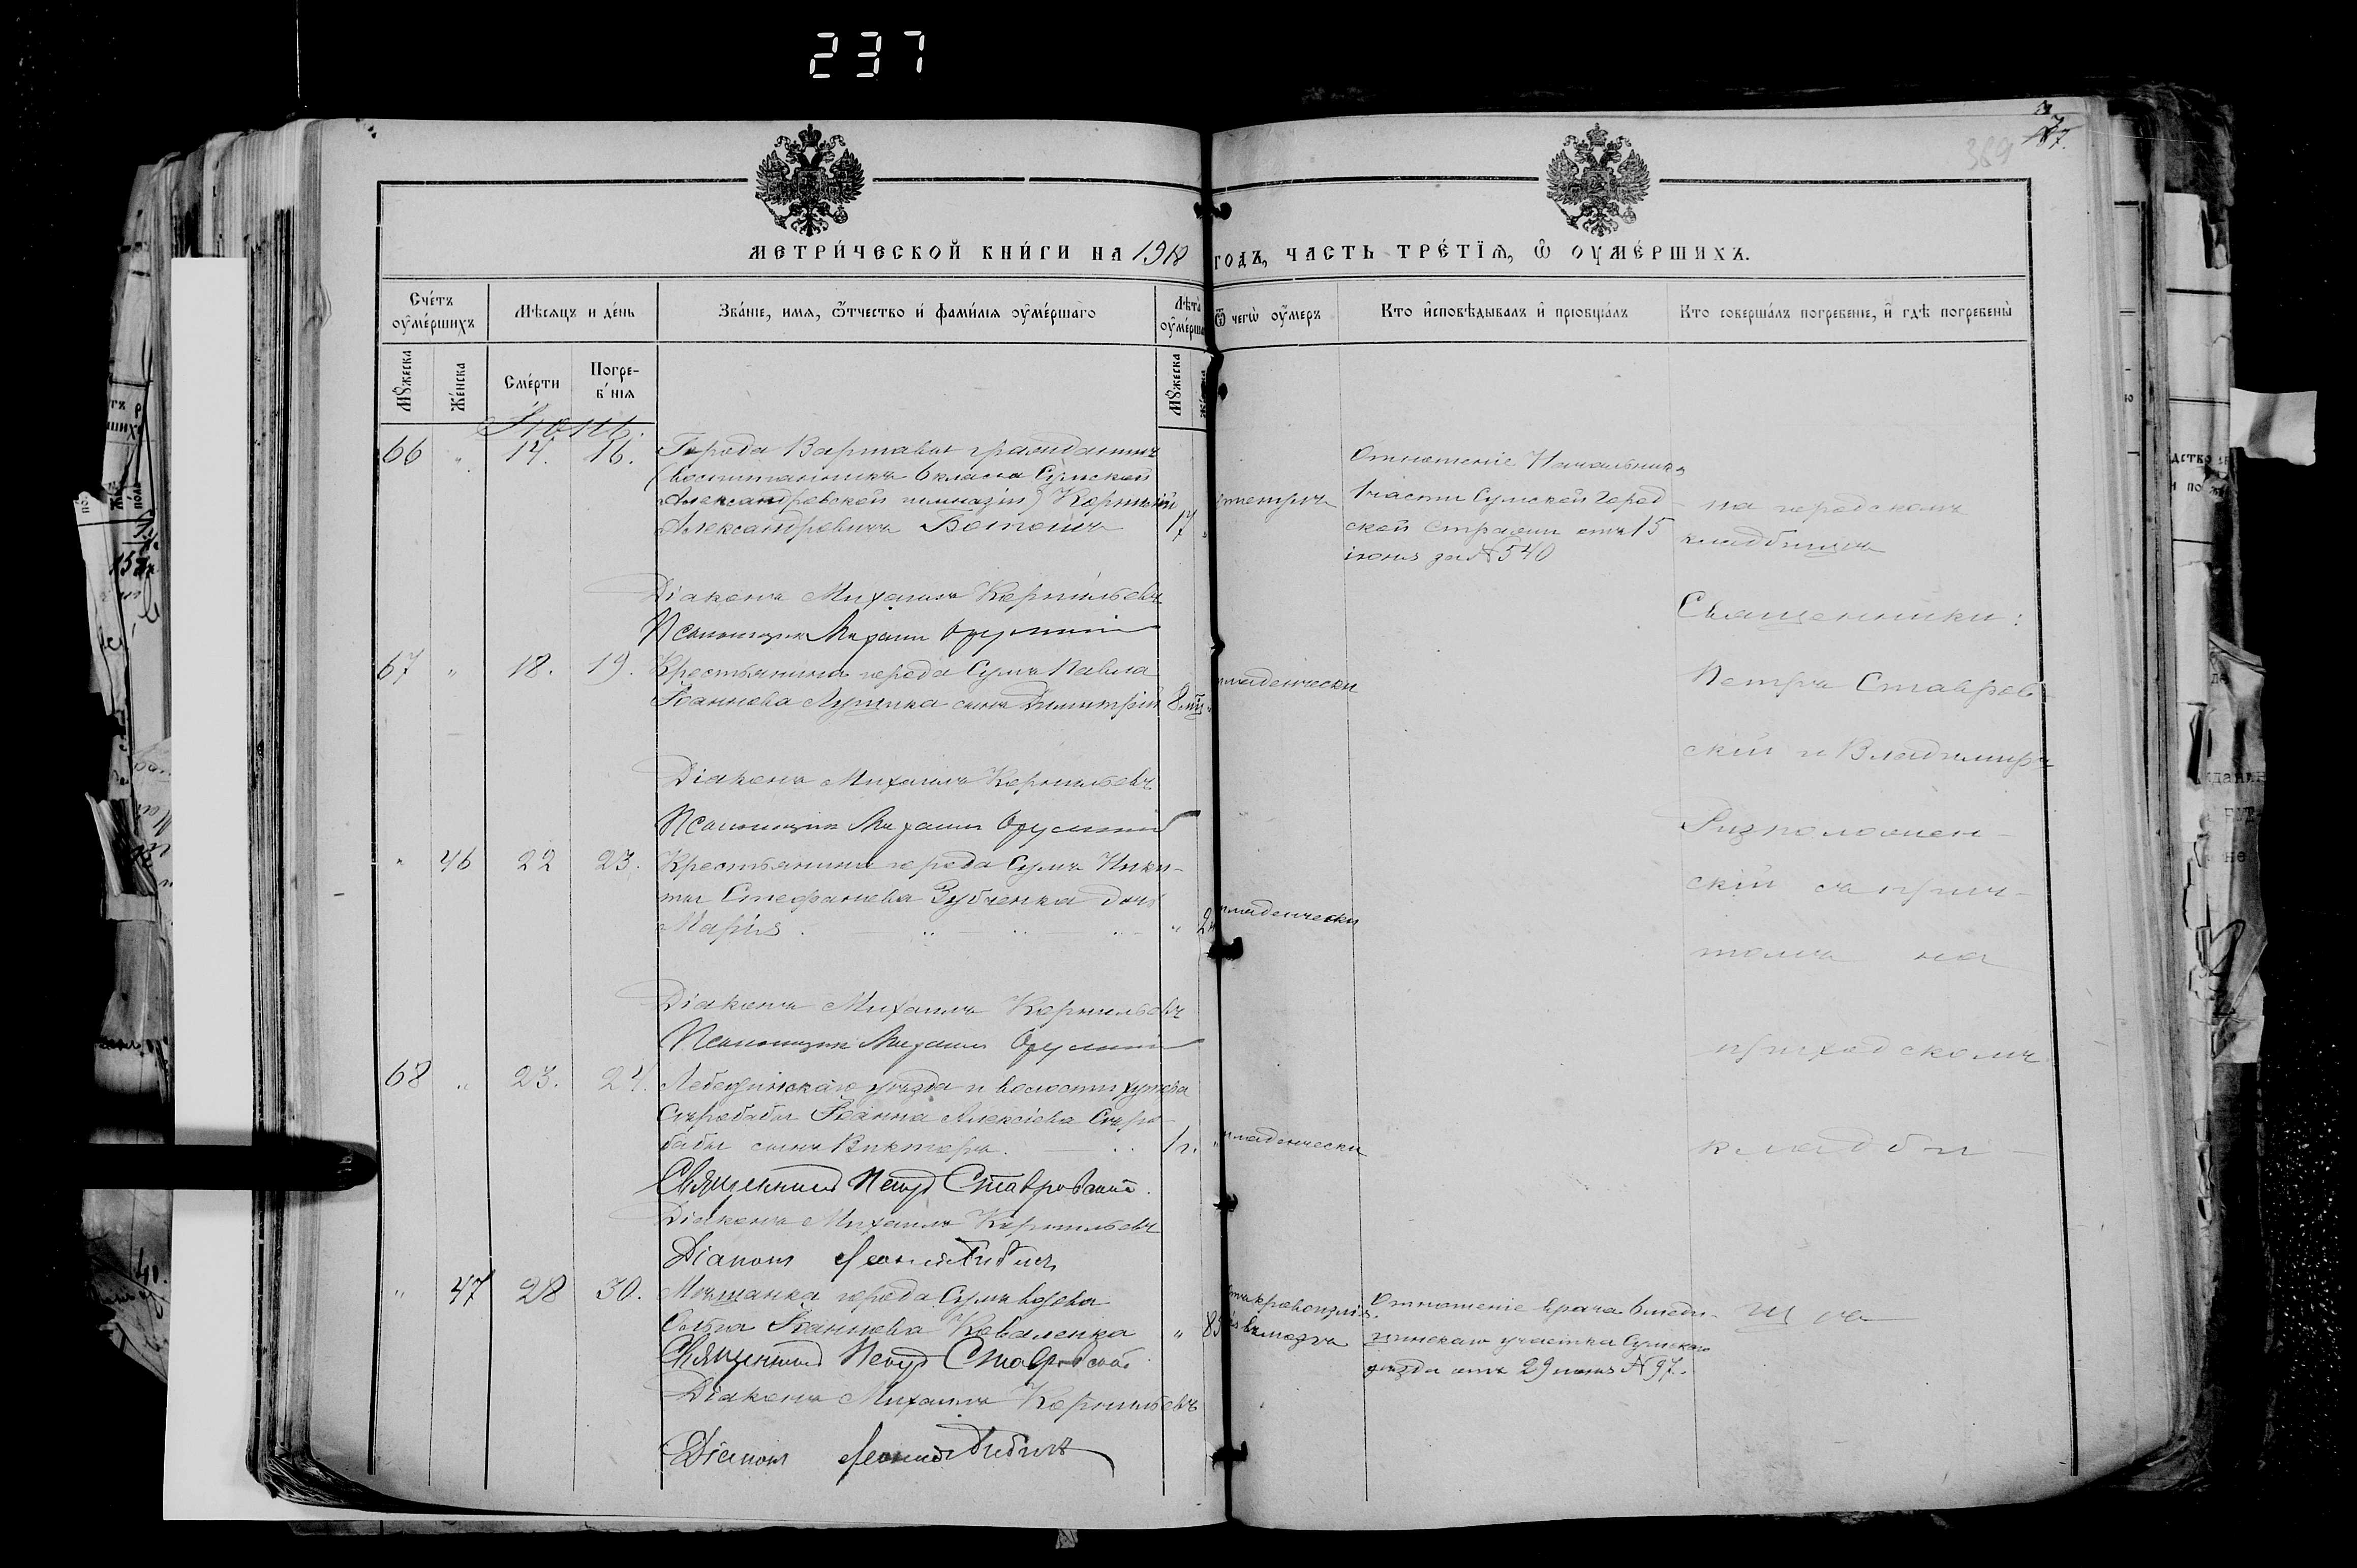 237
389
МЕТРИЧЕСКОЙ КНИГИ НА 1918 ГОДЪ, ЧАСТЬ ТРЕТІЯ, Ѿ ОУМЕРШИХЪ.
Счетъ оумершихъ
Мѣсяцъ и день
Званіе, имя, ѿтчество и фамилія оумершаго
Лѣта оумерша
Ѿ чегѡ оумеръ
Кто исповѣдывалъ и пріобщалъ
Кто совершалъ погребеніе, и гдѣ погребены
Мꙋжеска
Женска
Смерти
Погре-
бнія
Мꙋжеска
Іюнь.
66 " 14. 16. Города Варшавы гражданинъ
(воспитанникъ 6 класса Сумской
Александровской гимназіи) Корнилій
Александровичъ 17
Отношеніе Начальника
1 части Сумской Город-
ской Стражи отъ 15
іюня за № 540
на городскомъ
кладбищѣ
Діаконъ Михаилъ Корнильевъ
Псаломщик Михаил
Священники:
67 " 18. 19. Крестьянина города Сумъ Павла
Іоаннова сынъ Димитрій 8 мѣ.
младенчески
Петръ Ставров-
скій и Владиміръ
Діаконъ Михаилъ Корнильевъ
Псаломщик Михаил
Ризположен-
" 46 22 23. Крестьянина города Сумъ Ники-
ты Стефанова Зубченка дочь
Марія. " 2
младенчески
скій съ прич-
томъ на
Діаконъ Михаилъ Корнильевъ
Псаломщик Михаил
приходскомъ
68 " 23. 24. Лебединскаго уѣзда и волости хутора
Сѣробабы Іоанна Алексіева Сѣро-
бабы сынъ Викторъ. 1 г. "
младенчески
кладби-
Священникъ Петръ Ставровскій.
Діаконъ Михаилъ Корнильевъ
Діаконъ
" 47 28 30. Мѣщанка города Сумъ вдова
Іоаннова Коваленка " 85
кровоизлія-
въ мозгъ
Отношеніе врача 6 меди-
цинскаго участка Сумскаго
уѣзда отъ 29 іюня № 97.
щѣ
Священникъ Петръ Ставровскій
Діаконъ Михаилъ Корнильевъ
Діаконъ